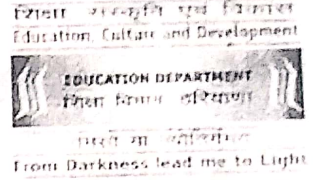 शिक्षा संस्कृति एवं विकास
Education, Culture and Development
EDUCATION DEPARTMENT
शिक्षा विभाग हरियाणा
From Darkness lead me to Light